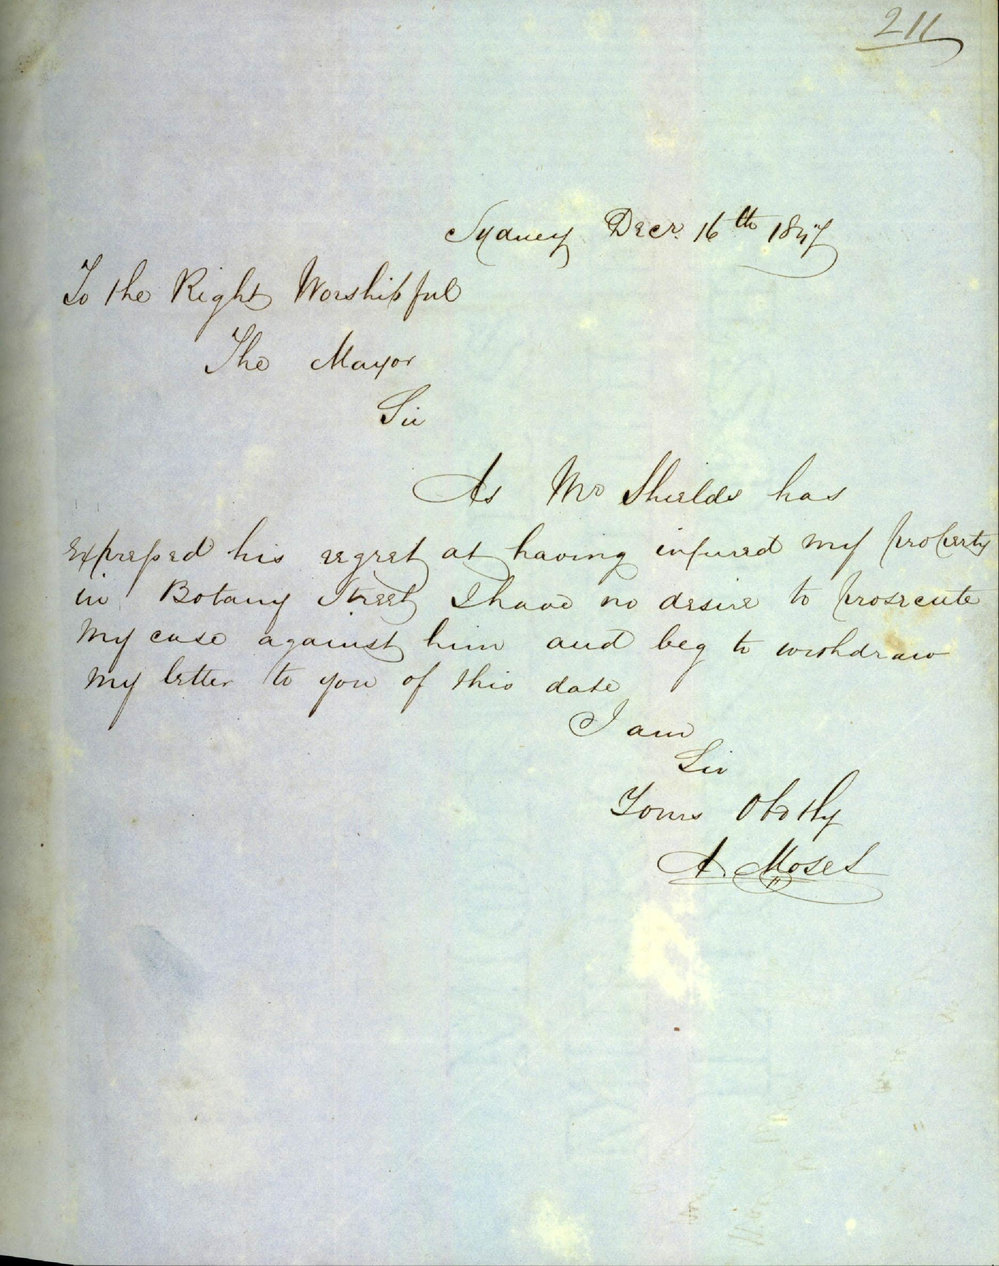 211
Sydney Decr. 16th 1847
To the Right Worshipful
The Mayor
Sir
As Mr Shields has
expressed his regret at having injured my property
in Botany Street I have no desire to prosecute
my case against him and beg to withdraw
my letter to you of this date
I am
Sir
Yours Obdtly
A. Moses